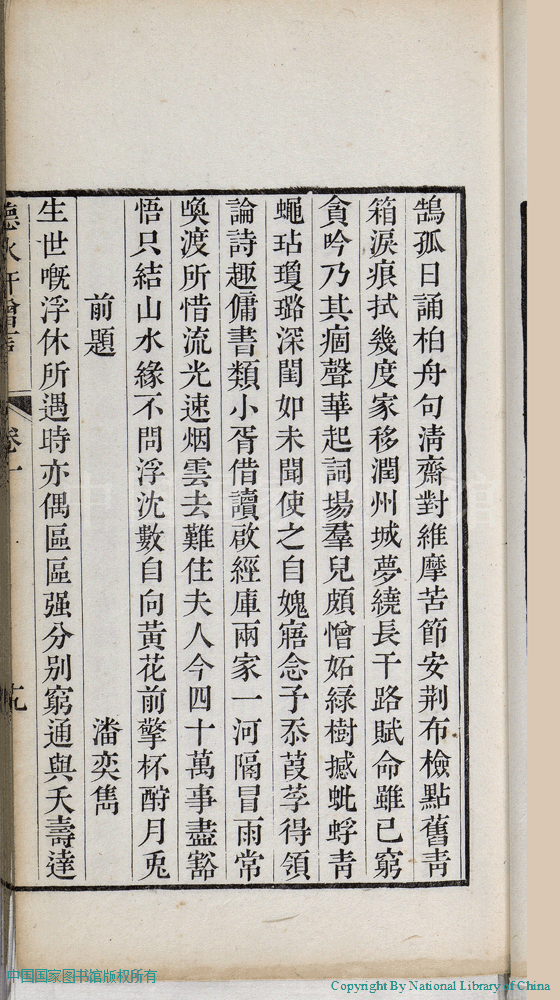 鵠孤日誦柏舟句淸齋對維摩苦節安荆布檢點舊靑
箱淚痕拭幾度家移潤州城夢繞長干路賦命雖已窮
貪吟乃其痼聲華起詞場羣兒頗憎妬緑樹撼蚍蜉靑
蠅玷瓊璐深閨如未聞使之自媿寤念予忝葭莩得領
論詩趣傭書類小胥借讀啟經庫兩家一河隔冒雨常
喚渡所惜流光速烟雲去難住夫人今四十萬事盡豁
悟只結山水緣不問浮沈數自向黃花前擎杯酹月兎
前題
潘奕雋
生世嘅浮休所遇時亦偶區區强分别窮通與夭壽達
卷一
中国国家图书馆版权所有
Copyright By National Library of China